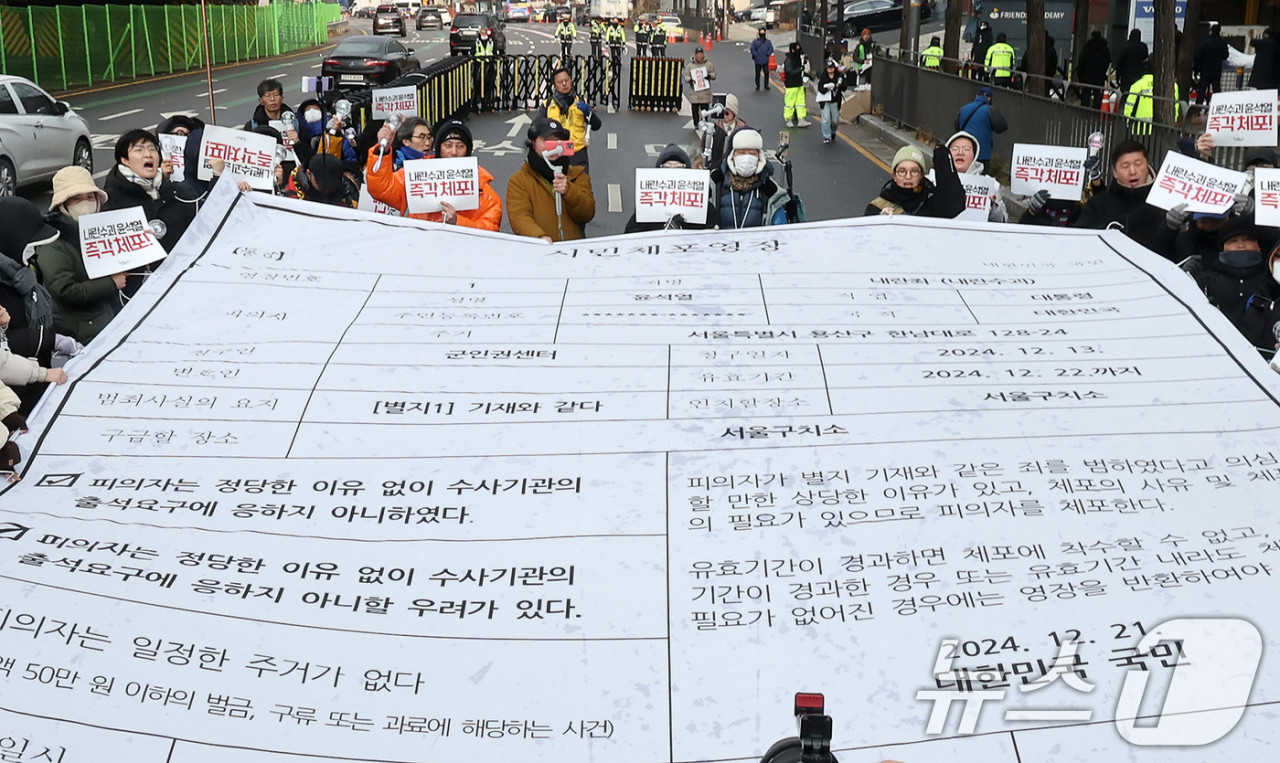 FRIENDS ACADEMY
내란수괴 윤석열
즉각체포!
내란수괴 윤석열
즉각체포!
내란수괴 윤석열
즉각체포!
내란수괴 윤석열
즉각체포!
내란수괴 윤석열
즉각체포!
내란수괴 윤석열
즉각체포!
내란수괴 윤석열
즉각체포!
시민체포영장
영장번호 1 죄명 내란죄 (내란수괴)
피의자 성명 윤석열 직업 대통령
주민등록번호 ******-******* 국적 대한민국
주거 서울특별시 용산구 한남대로 128-24
청구인 군인권센터 청구일자 2024. 12. 13.
변호인 유효기간 2024. 12. 22.까지
범죄사실의 요지 [별지1] 기재와 같다 인치할장소 서울구치소
구금할 장소 서울구치소
☑ 피의자는 정당한 이유 없이 수사기관의
출석요구에 응하지 아니하였다.
☑ 피의자는 정당한 이유 없이 수사기관의
출석요구에 응하지 아니할 우려가 있다.
피의자는 일정한 주거가 없다
액 50만 원 이하의 벌금, 구류 또는 과료에 해당하는 사건)
일시
피의자가 별지 기재와 같은 죄를 범하였다고 의심
할 만한 상당한 이유가 있고, 체포의 사유 및 체
의 필요가 있으므로 피의자를 체포한다.
유효기간이 경과하면 체포에 착수할 수 없고,
기간이 경과한 경우 또는 유효기간 내라도 체
필요가 없어진 경우에는 영장을 반환하여야
2024. 12. 21.
대한민국 국민
뉴스1